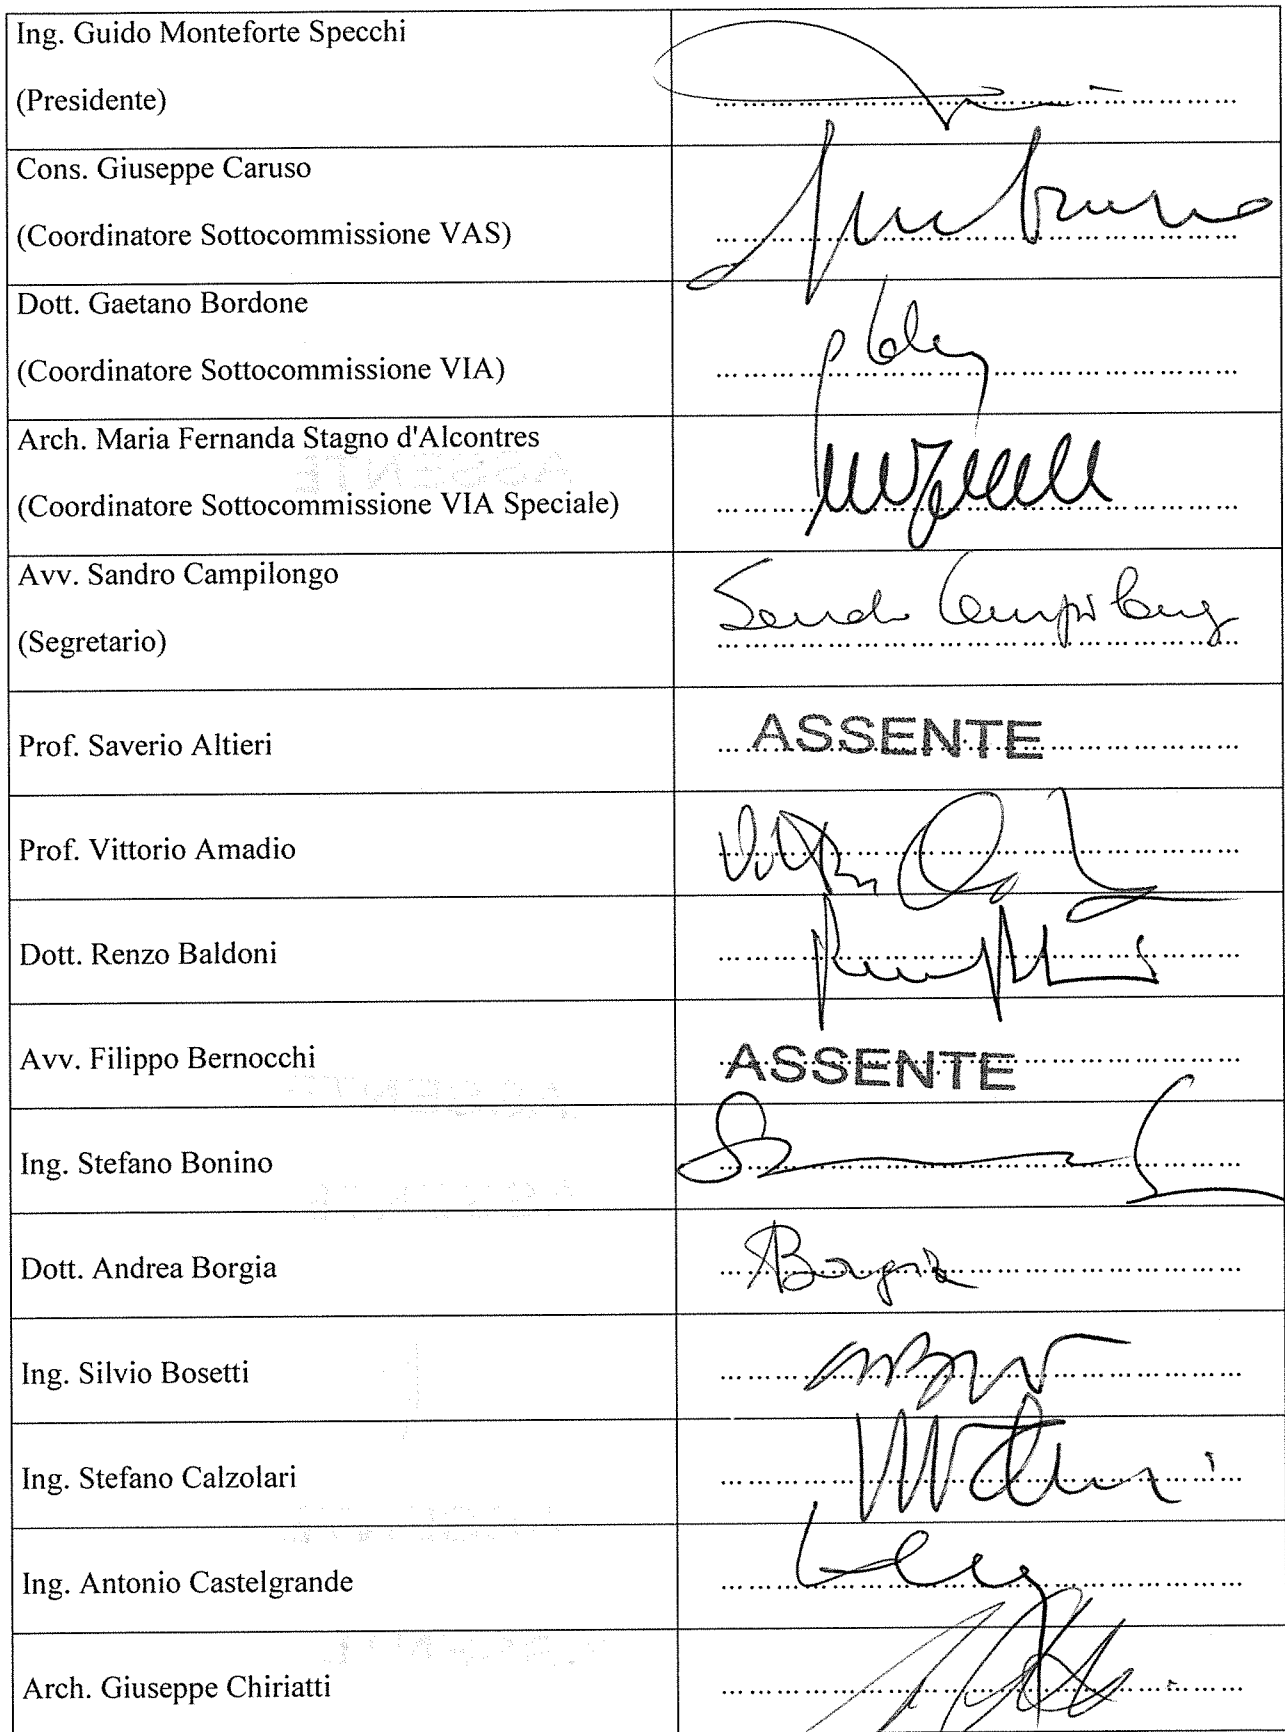 Ing. Guido Monteforte Specchi
(Presidente)
Cons. Giuseppe Caruso
(Coordinatore Sottocommissione VAS)
Dott. Gaetano Bordone
(Coordinatore Sottocommissione VIA)
Arch. Maria Fernanda Stagno d'Alcontres
(Coordinatore Sottocommissione VIA Speciale)
Avv. Sandro Campilongo
(Segretario)
Sandro Campilongo
Prof. Saverio Altieri
ASSENTE
Prof. Vittorio Amadio
Dott. Renzo Baldoni
Avv. Filippo Bernocchi
ASSENTE
Ing. Stefano Bonino
Dott. Andrea Borgia
ABorgia
Ing. Silvio Bosetti
Ing. Stefano Calzolari
Ing. Antonio Castelgrande
Arch. Giuseppe Chiriatti